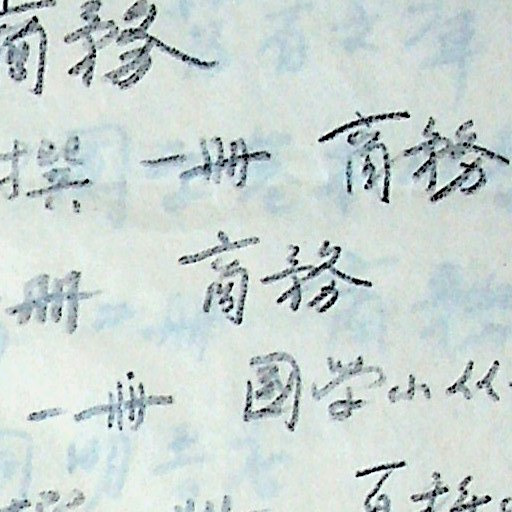 商務
撰 一册 商務
册 商務
一册 國学小